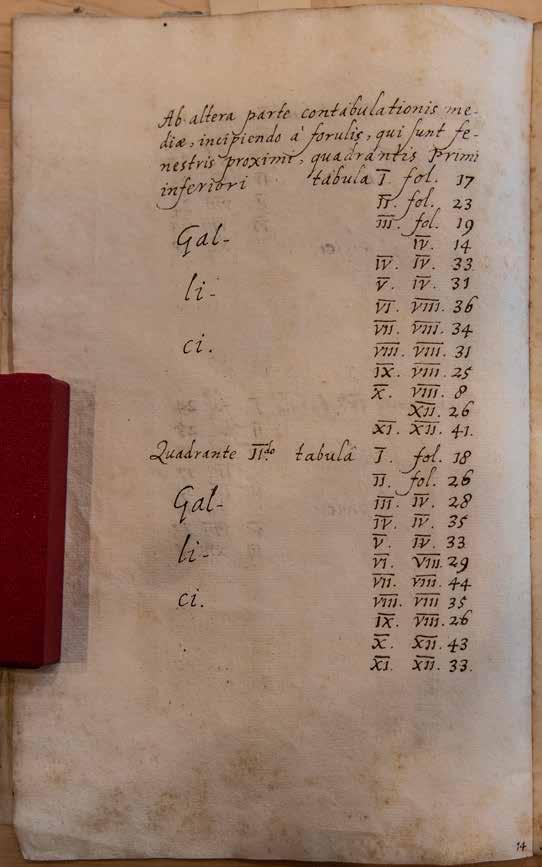 Ab altera parte contabulationis me-
diæ, incipiendo à forulis, qui sunt fe-
nestris proximi, quadrantis Primi
inferiori tabula I. fol. 17
II. fol. 23
III. fol. 19
Gal- IV. 14
IV. IV. 33
li- V. IV. 31
VI. VIII. 36
VII. VIII. 34
ci. VIII. VIII. 31
IX. VIII. 25
X. VIII. 8
XII. 26
XI. XII. 41.
Quadrante II.do tabulâ I. fol. 18
II. fol. 26
Gal- III. IV. 28
IV. IV. 35
li- V. IV. 33
VI. VIII. 29
VII. VIII. 44
ci. VIII. VIII 35
IX. VIII. 26
X. XII. 43
XI. XII. 33.
14